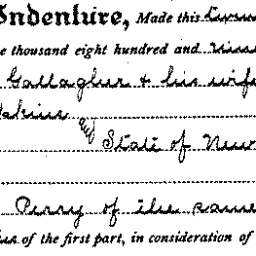 Indenture, Made this
one thousand eight hundred and nine
Gallagher & his wife
and
State of New
Perry of the same
of the first part, in consideration of